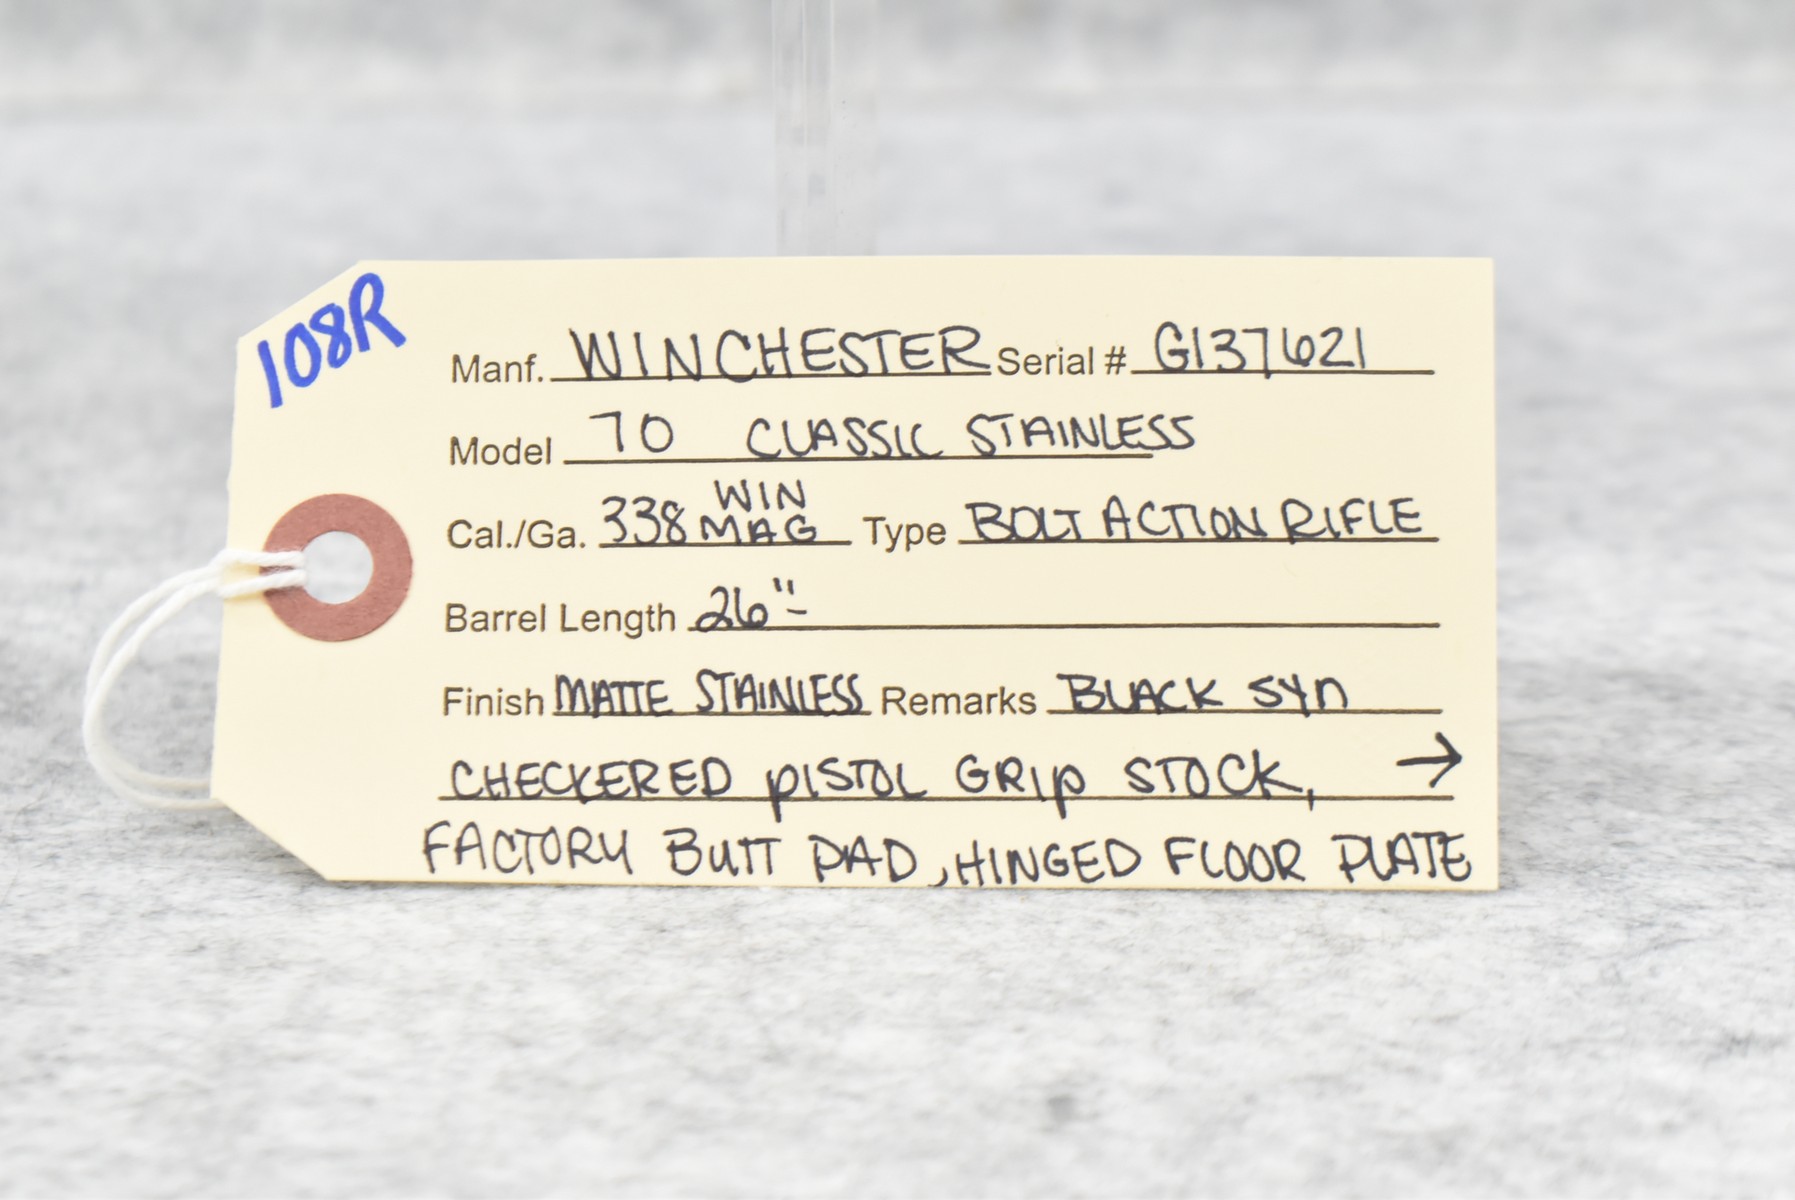 108R
Manf. WINCHESTER Serial # G137621
Model 70 CLASSIC STAINLESS
Cal./Ga. 338 WIN MAG Type BOLT ACTION RIFLE
Barrel Length 26"-
Finish MATTE STAINLESS Remarks BLACK SYN
CHECKERED PISTOL GRIP STOCK, →
FACTORY BUTT PAD, HINGED FLOOR PLATE